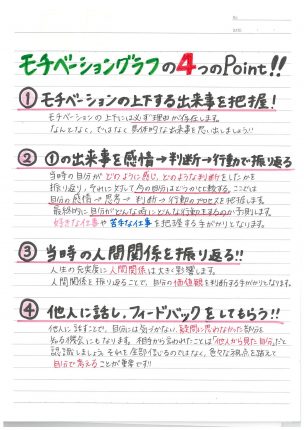 No.
DATE
モチベーショングラフの4つのPoint!!
① モチベーションの上下する出来事を把握!
モチベーションの上下には必ず理由が存在します。
なんとなく、ではなく具体的な出来事を思い出しましょう!!
② ①の出来事を感情→判断→行動で振り返る
当時の自分がどのように感じ、どのような判断をしたかを
振り返り、それに対して今の自分はどうかを比較する。ここでは
自分の感情→思考→判断→行動のプロセスを把握します。
最終的に自分がどんな時にどんな行動をするのか予測します。
好きな仕事や苦手な仕事を把握する手がかりとなります。
③ 当時の人間関係を振り返る!!
人生の充実度に人間関係は大きく影響します。
人間関係を振り返ることで、自分の価値観を判断する手がかりとなります。
④ 他人に話し、フィードバックをしてもらう!!
他人に話すことで、自分には気づかない、疑問に思わなかった部分を
知る機会にもなります。相手から言われたことは「他人から見た自分」だと
認識しましょう。それを全部信じるのではなく、色々な視点を踏まえて
自分で考えることが重要です!!